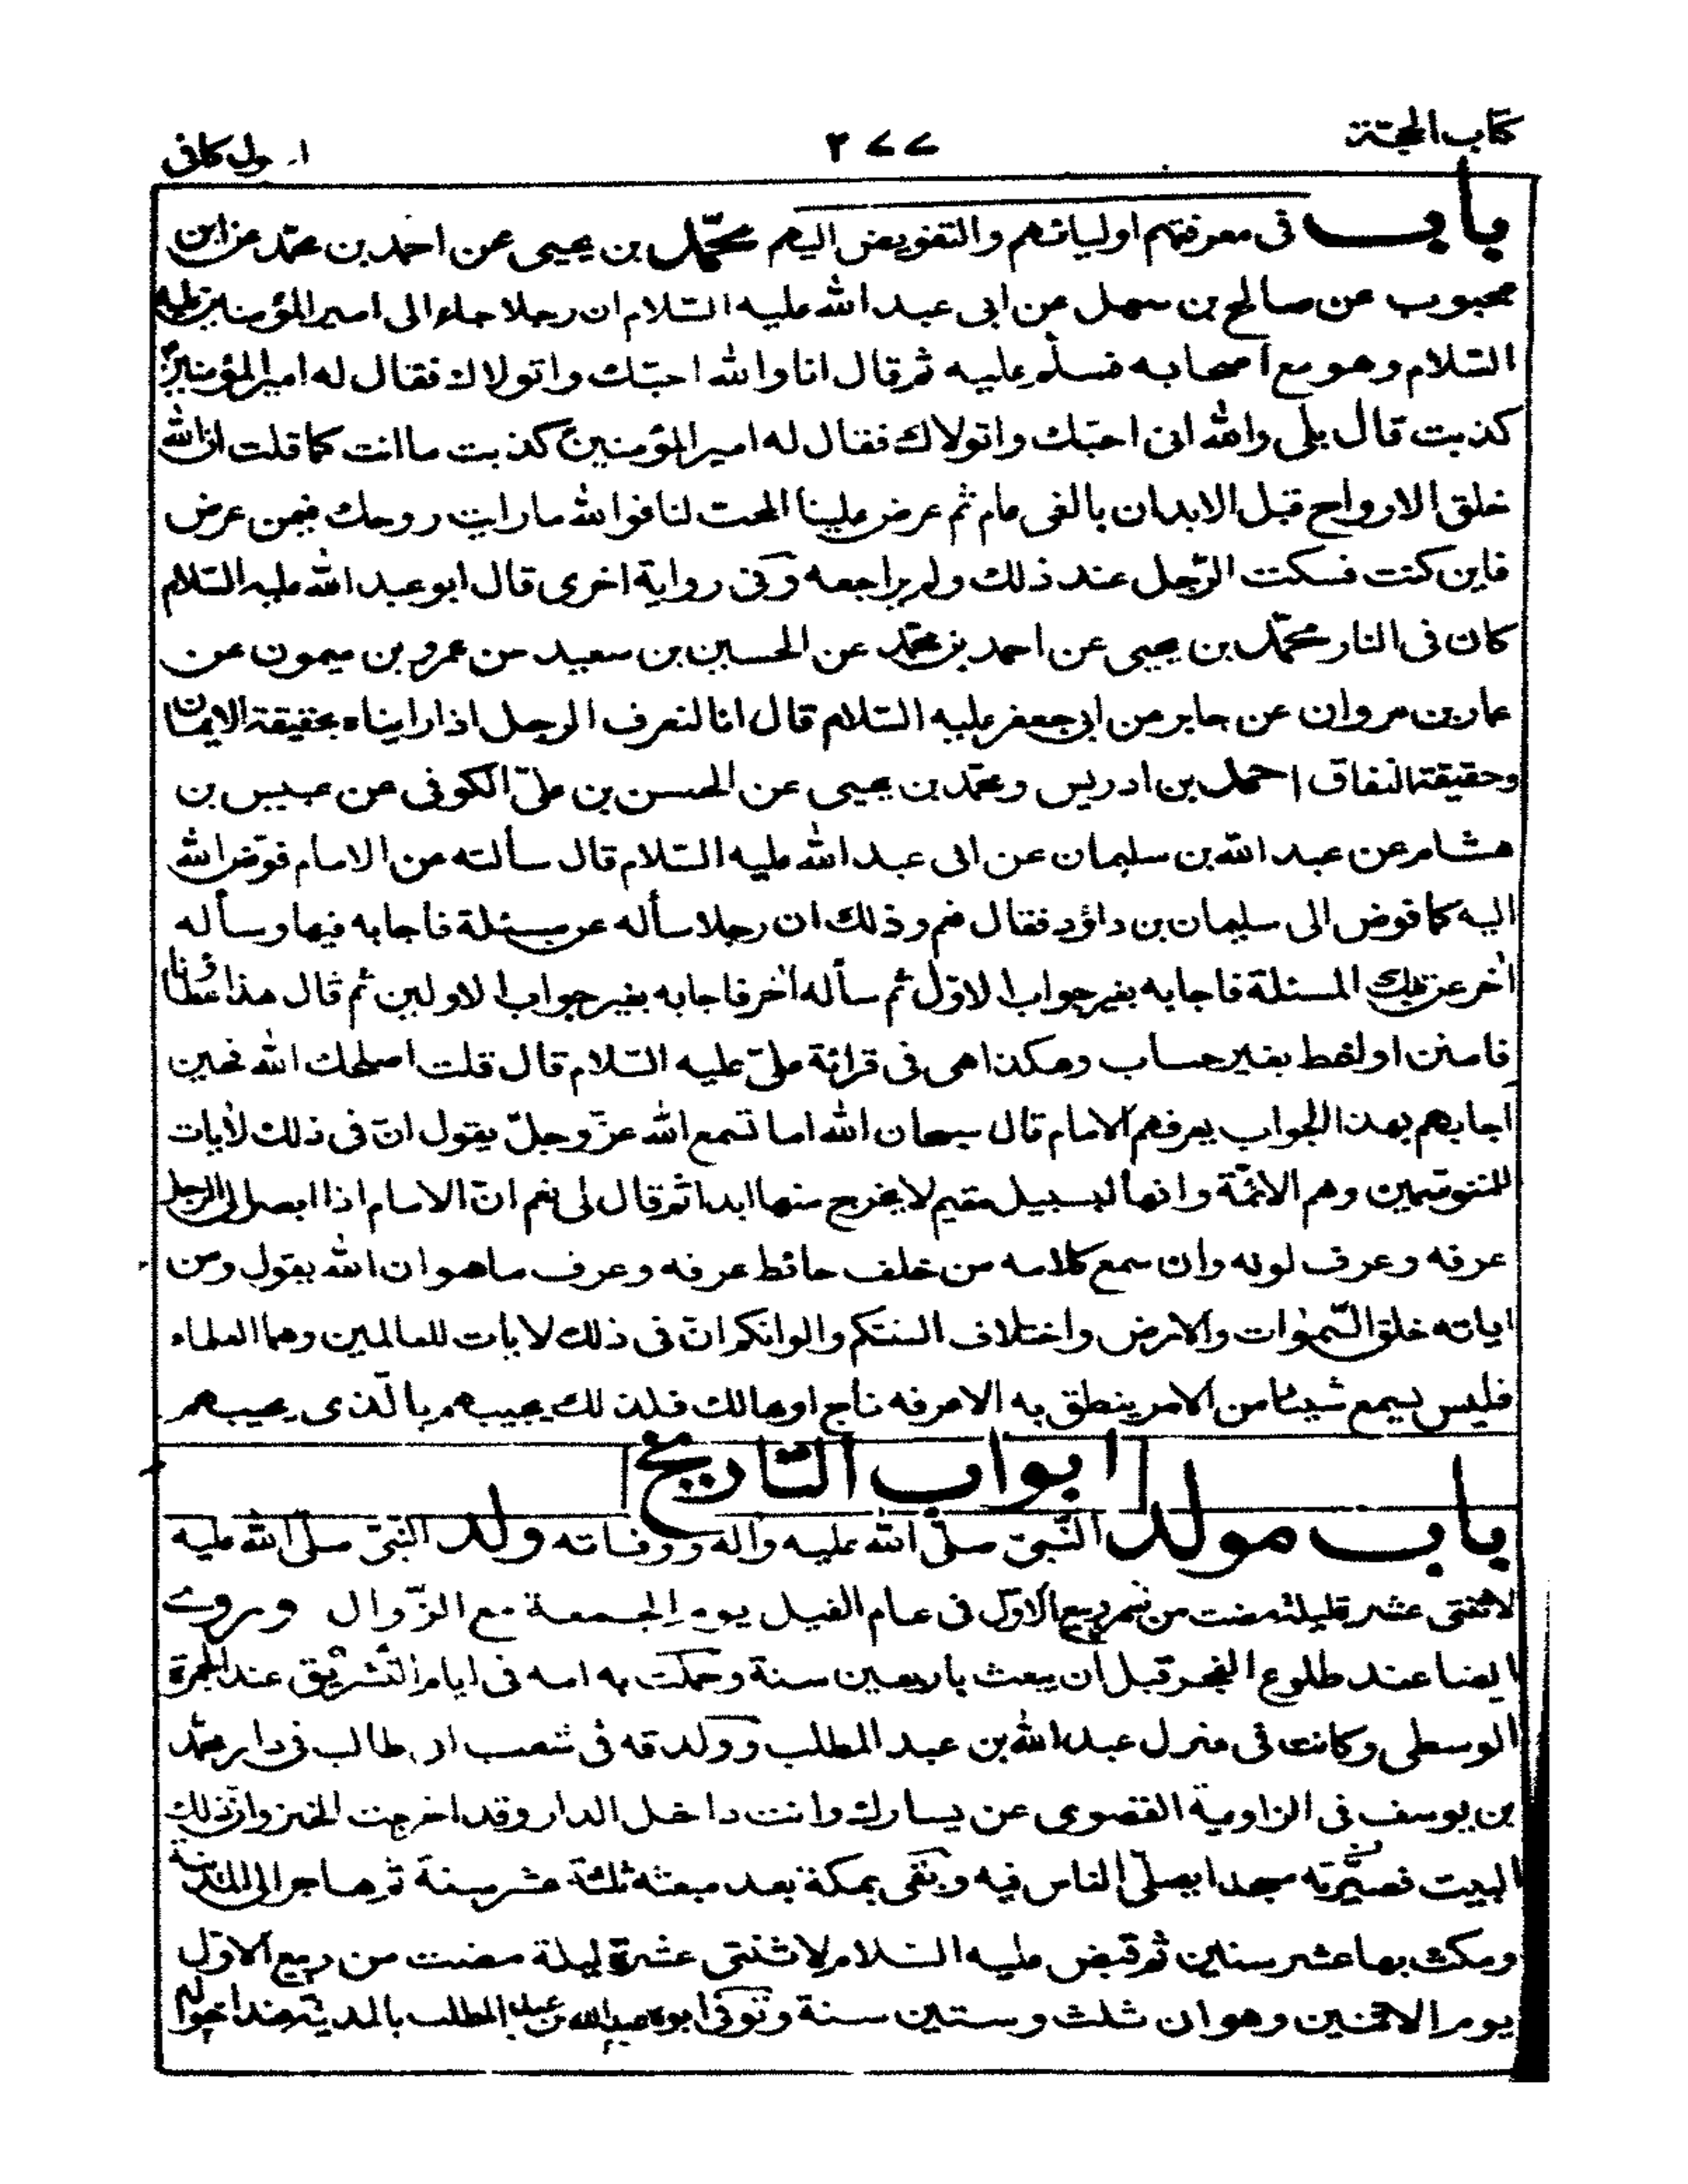 كتاب الحجّة ٢٧٧ اصول كافى
باب فى معرفتهم اوليائهم والتفويض اليهم محمّد بن يحيى عن احمد بن محمّد عن ابن
محبوب عن صالح بن سهل عن ابى عبد الله عليه السّلام ان رجلا جاء الى امير المؤمنين عليه
السّلام وهو مع اصحابه فسلّم عليه ثم قال انا والله احبّك واتولاك فقال له امير المؤمنين ع
كذبت قال بلى والله انى احبّك واتولاك فقال له امير المؤمنين ع كذبت ما انت كما قلت ان الله
خلق الارواح قبل الابدان بالفى عام ثم عرض علينا المحب لنا فوالله ما رايت روحك فيمن عرض
فاين كنت فسكت الرّجل عند ذلك ولم يراجعه وفى رواية اخرى قال ابو عبد الله عليه السّلام
كان فى النار محمّد بن يحيى عن احمد بن محمّد عن الحسين بن سعيد عن عمرو بن ميمون عن
عمار بن مروان عن جابر عن ابى جعفر عليه السّلام قال انا لنعرف الرجل اذا رايناه بحقيقة الايمان
وحقيقة النفاق احمد بن ادريس ومحمّد بن يحيى عن الحسن بن علىّ الكوفى عن عبيس بن
هشام عن عبد الله بن سليمان عن ابى عبد الله عليه السّلام قال سألته عن الامام فوّض الله
اليه كما فوض الى سليمان بن داؤد فقال نعم وذلك ان رجلا سأله عن مسئلة فاجابه فيها وسأله
آخر عن تلك المسئلة فاجابه بغير جواب الاوّل ثم سأله آخر فاجابه بغير جواب الاولين ثم قال هذا عطاؤنا
فامنن او اعط بغير حساب وهكذا هى فى قرائة علىّ عليه السّلام قال قلت اصلحك الله فحين
اجابهم بهذا الجواب يعرفهم الامام قال سبحان الله اما تسمع الله عزّ وجلّ يقول انّ فى ذلك لآيات
للمتوسّمين وهم الائمّة وانها لبسبيل مقيم لا يخرج منها ابدا ثم قال لى نعم انّ الامام اذا ابصر الى الرجل
عرفه وعرف لونه وان سمع كلامه من خلف حائط عرفه وعرف ما هو ان الله يقول ومن
اياته خلق السّموات والارض واختلاف السنتكم والوانكم انّ فى ذلك لايات للعالمين وهم العلماء
فليس يسمع شيئا من الامر ينطق به الا عرفه ناج او هالك فلذلك يجيبهم بالّذى يجيبهم
ابواب التّاريخ
باب مولد النّبىّ صلّى الله عليه وآله ووفاته ولد النّبىّ صلّى الله عليه
لاثنتى عشرة ليلة مضت من شهر ربيع الاوّل فى عام الفيل يوم الجمعة مع الزّوال وروى
ايضا عند طلوع الفجر قبل ان يبعث باربعين سنة وحملت به امه فى ايام التّشريق عند الجمرة
الوسطى وكانت فى منزل عبد الله بن عبد المطلب وولدته فى شعب ابى طالب فى دار محمّد
بن يوسف فى الزاوية القصوى عن يسارك وانت داخل الدار وقد اخرجت الخيزران ذلك
البيت فصيّرته مسجدا يصلّى الناس فيه وبقى بمكة بعد مبعثه ثلثة عشر سنة ثم هاجر الى المدينة
ومكث بها عشر سنين ثم قبض عليه السّلام لاثنتى عشرة ليلة مضت من ربيع الاوّل
يوم الاثنين وهو ابن ثلث وستين سنة وتوفى ابوه عبد الله بن عبد المطلب بالمدينة عند اخواله